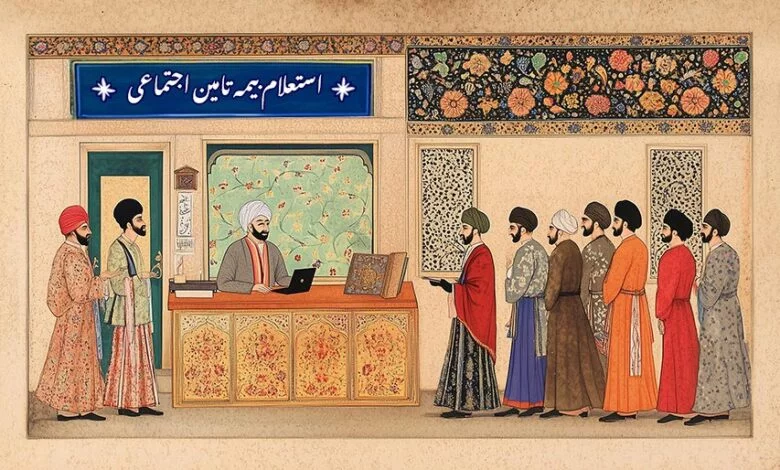 استعلام بیمه تامین اجتماعی